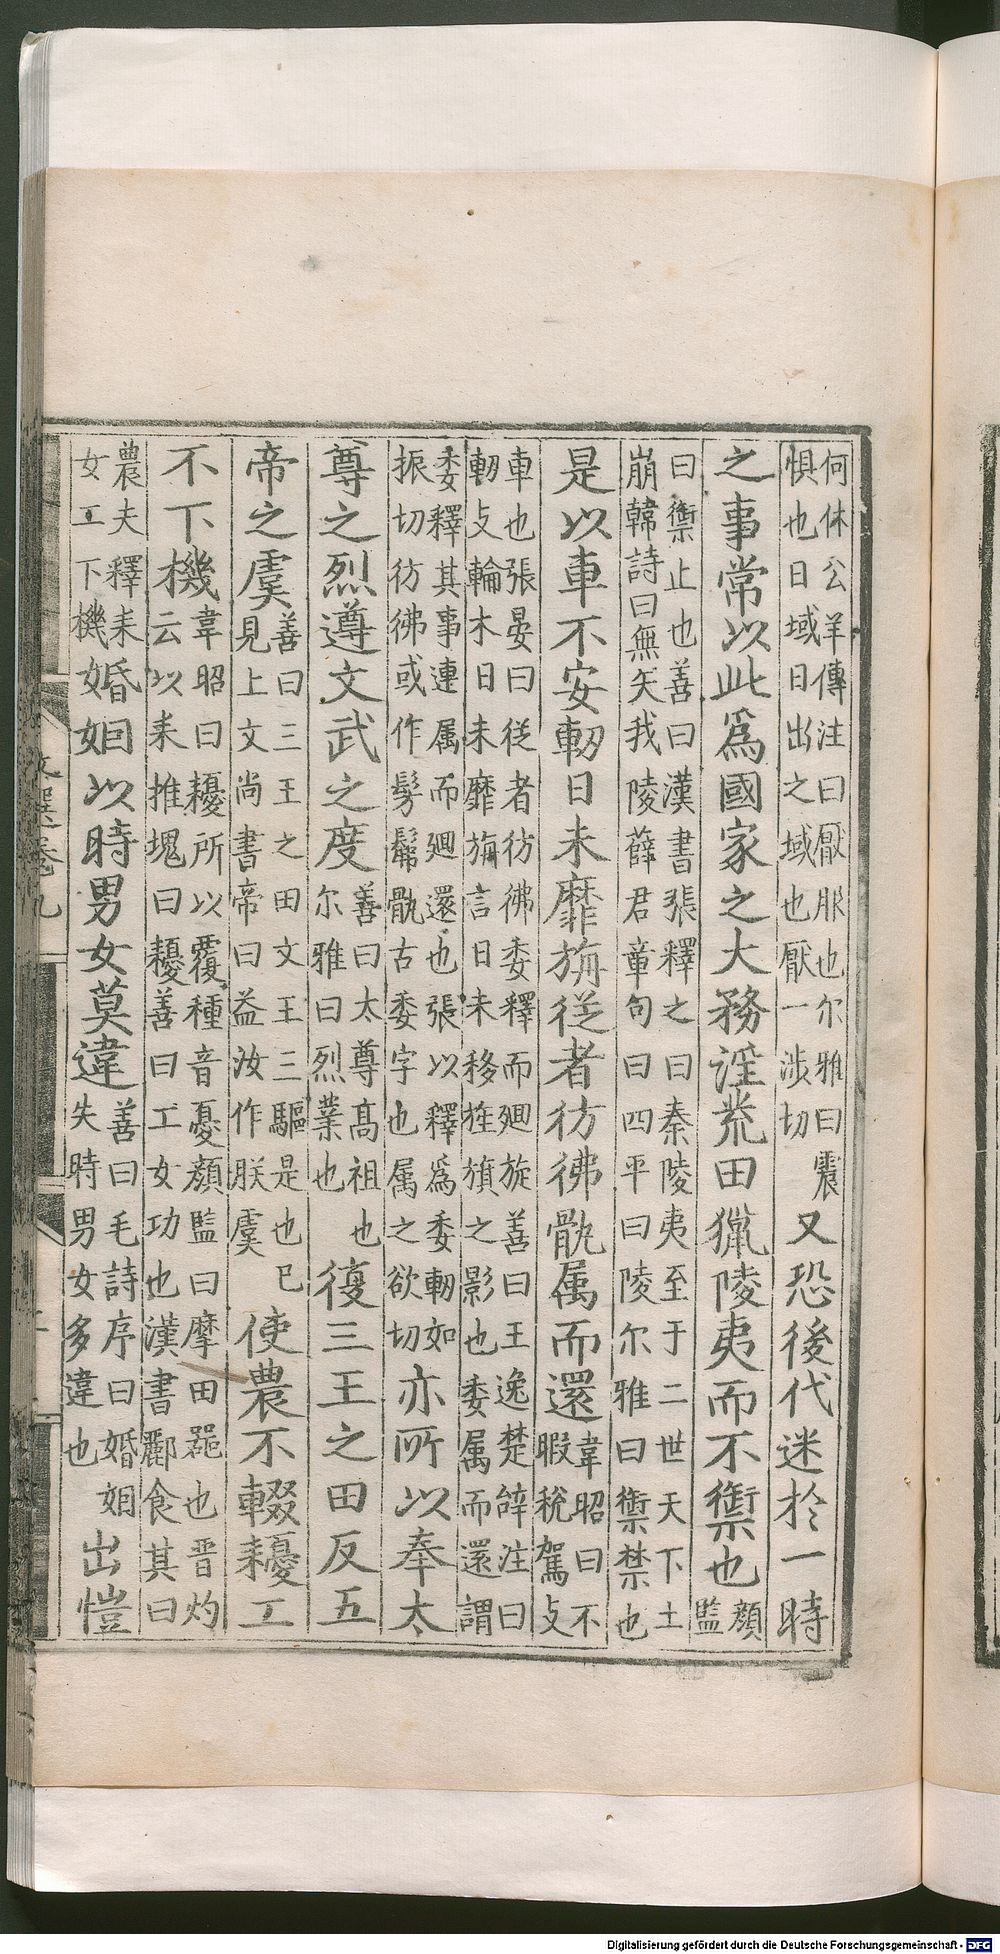 何休公羊傳注曰厭服也尔雅曰震
惧也日域日出之域也厭一涉切又恐後代迷於一時
之事常以此爲國家之大務淫荒田獵陵夷而不禦也顏監
曰禦止也善曰漢書張釋之曰秦陵夷至于二世天下土
崩韓詩曰無矢我陵薛君章句曰四平曰陵尔雅曰禦禁也
是以車不安軔日未靡旃從者彷彿骫属而還韋昭曰不暇稅駕攴
車也張晏曰従者彷彿委釋而廻旋善曰王逸楚辝注曰
軔攴輪木日未靡旃言日未移旌旗之影也委属而還謂
委釋其事連属而廻還也張以釋爲委軔如
振切彷彿或作髣髴骫古委字也属之欲切亦所以奉太
尊之烈遵文武之度善曰太尊髙祖也尔雅曰烈業也復三王之田反五
帝之虞善曰三王之田文王三驅是也巳見上文尚書帝曰益汝作朕虞使農不輟耰工
不下機韋昭曰耰所以覆種音憂顏監曰摩田噐也晋灼云以耒推塊曰耰善曰工女功也漢書酈食其曰
農夫釋耒女工下機婚姻以時男女莫違善曰毛詩序曰婚姻失時男女多違也出愷
文選卷九
Digitalisierung gefördert durch die Deutsche Forschungsgemeinschaft - DFG